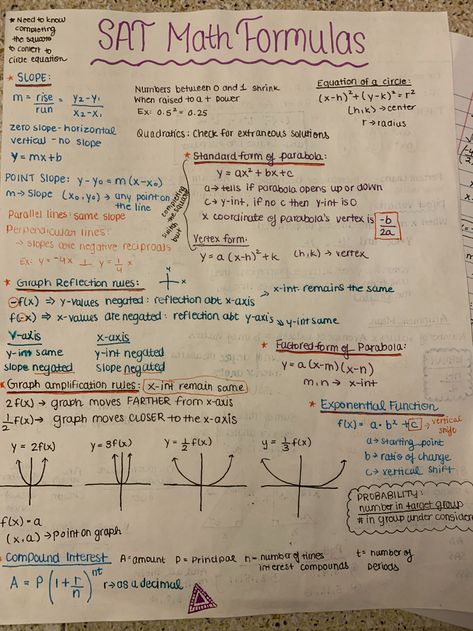 * Need to know
completing
the square
to convert to
circle equation
SAT Math Formulas
* SLOPE:
m = rise/run = y₂-y₁/x₂-x₁
zero slope - horizontal
vertical - no slope
y = mx+b
POINT SLOPE: y-y₀ = m(x-x₀)
m → slope (x₀, y₀) → any point on
the line
Parallel lines: same slope
Perpendicular lines:
→ slopes are negative reciprocals
Ex: y = -4x ⊥ y = 1/4 x
Numbers between 0 and 1 shrink
when raised to a + power
Ex: 0.5² = 0.25
Equation of a circle:
(x-h)²+(y-k)² = r²
(h,k) → center
r → radius
Quadratics: Check for extraneous solutions
* Standard form of parabola:
y = ax²+bx+c
a → tells if parabola opens up or down
c → y-int, if no c then y-int is 0
x coordinate of parabola's vertex is -b/2a
completing
the square
switch
Vertex form:
y = a(x-h)²+k (h,k) → vertex
* Graph Reflection rules:
-f(x) → y-values negated: reflection abt x-axis → x-int remains the same
f(-x) → x-values are negated: reflection abt y-axis → y-int same
y-axis x-axis
y-int same y-int negated
slope negated slope negated
* Graph amplification rules: x-int remain same
2f(x) → graph moves FARTHER from x-axis
1/2 f(x) → graph moves CLOSER to the x-axis
y = 2f(x) y = 3f(x) y = 1/2 f(x) y = 1/3 f(x)
* Factored form of Parabola:
y = a(x-m)(x-n)
m, n → x-int
* Exponential Function
f(x) = a·bˣ + c → vertical
shift
a → starting point
b → ratio of change
c → vertical shift
PROBABILITY:
number in target group
# in group under consider
f(x) = a
(x,a) → point on graph
Compound Interest A = amount P = principal n = number of times
interest compounds t = number of
periods
A = P(1+r/n)ⁿᵗ r → as a decimal